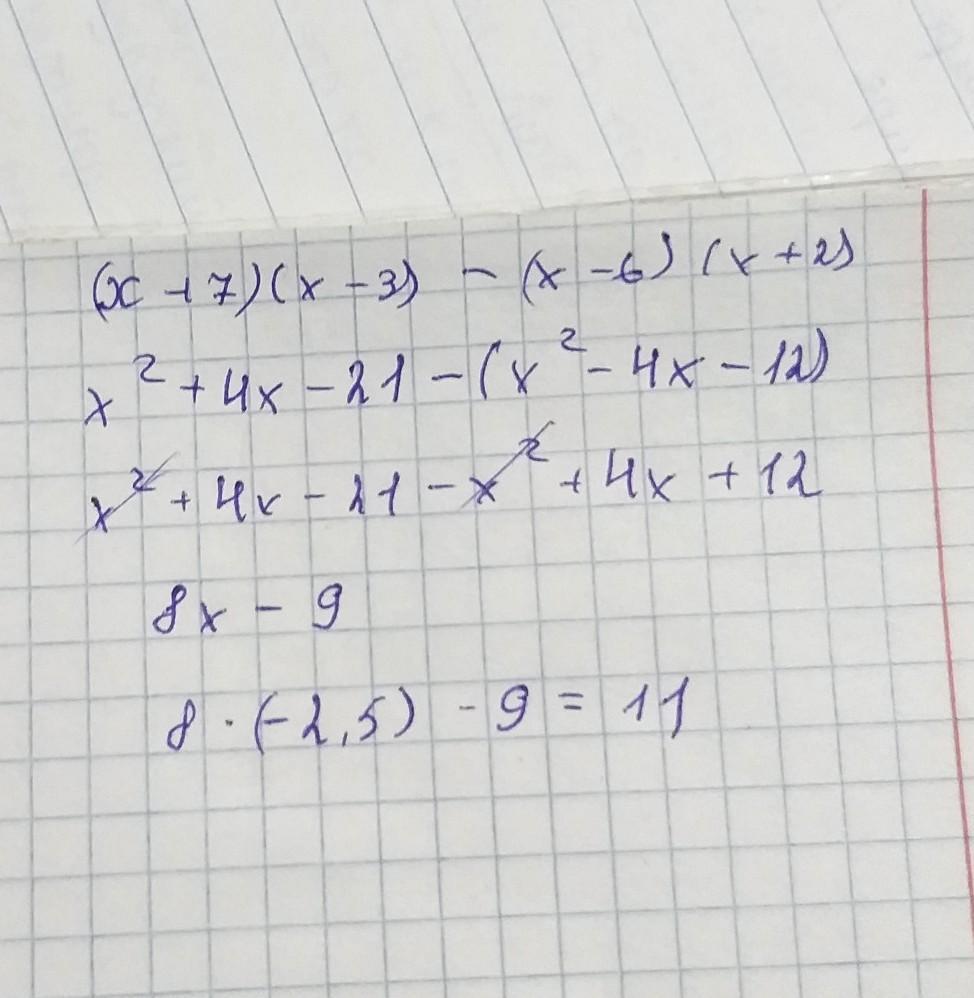 (x + 7)(x - 3) - (x - 6)(x + 2)
x² + 4x - 21 - (x² - 4x - 12)
x² + 4x - 21 - x² + 4x + 12
8x - 9
8 · (-2,5) - 9 = 11